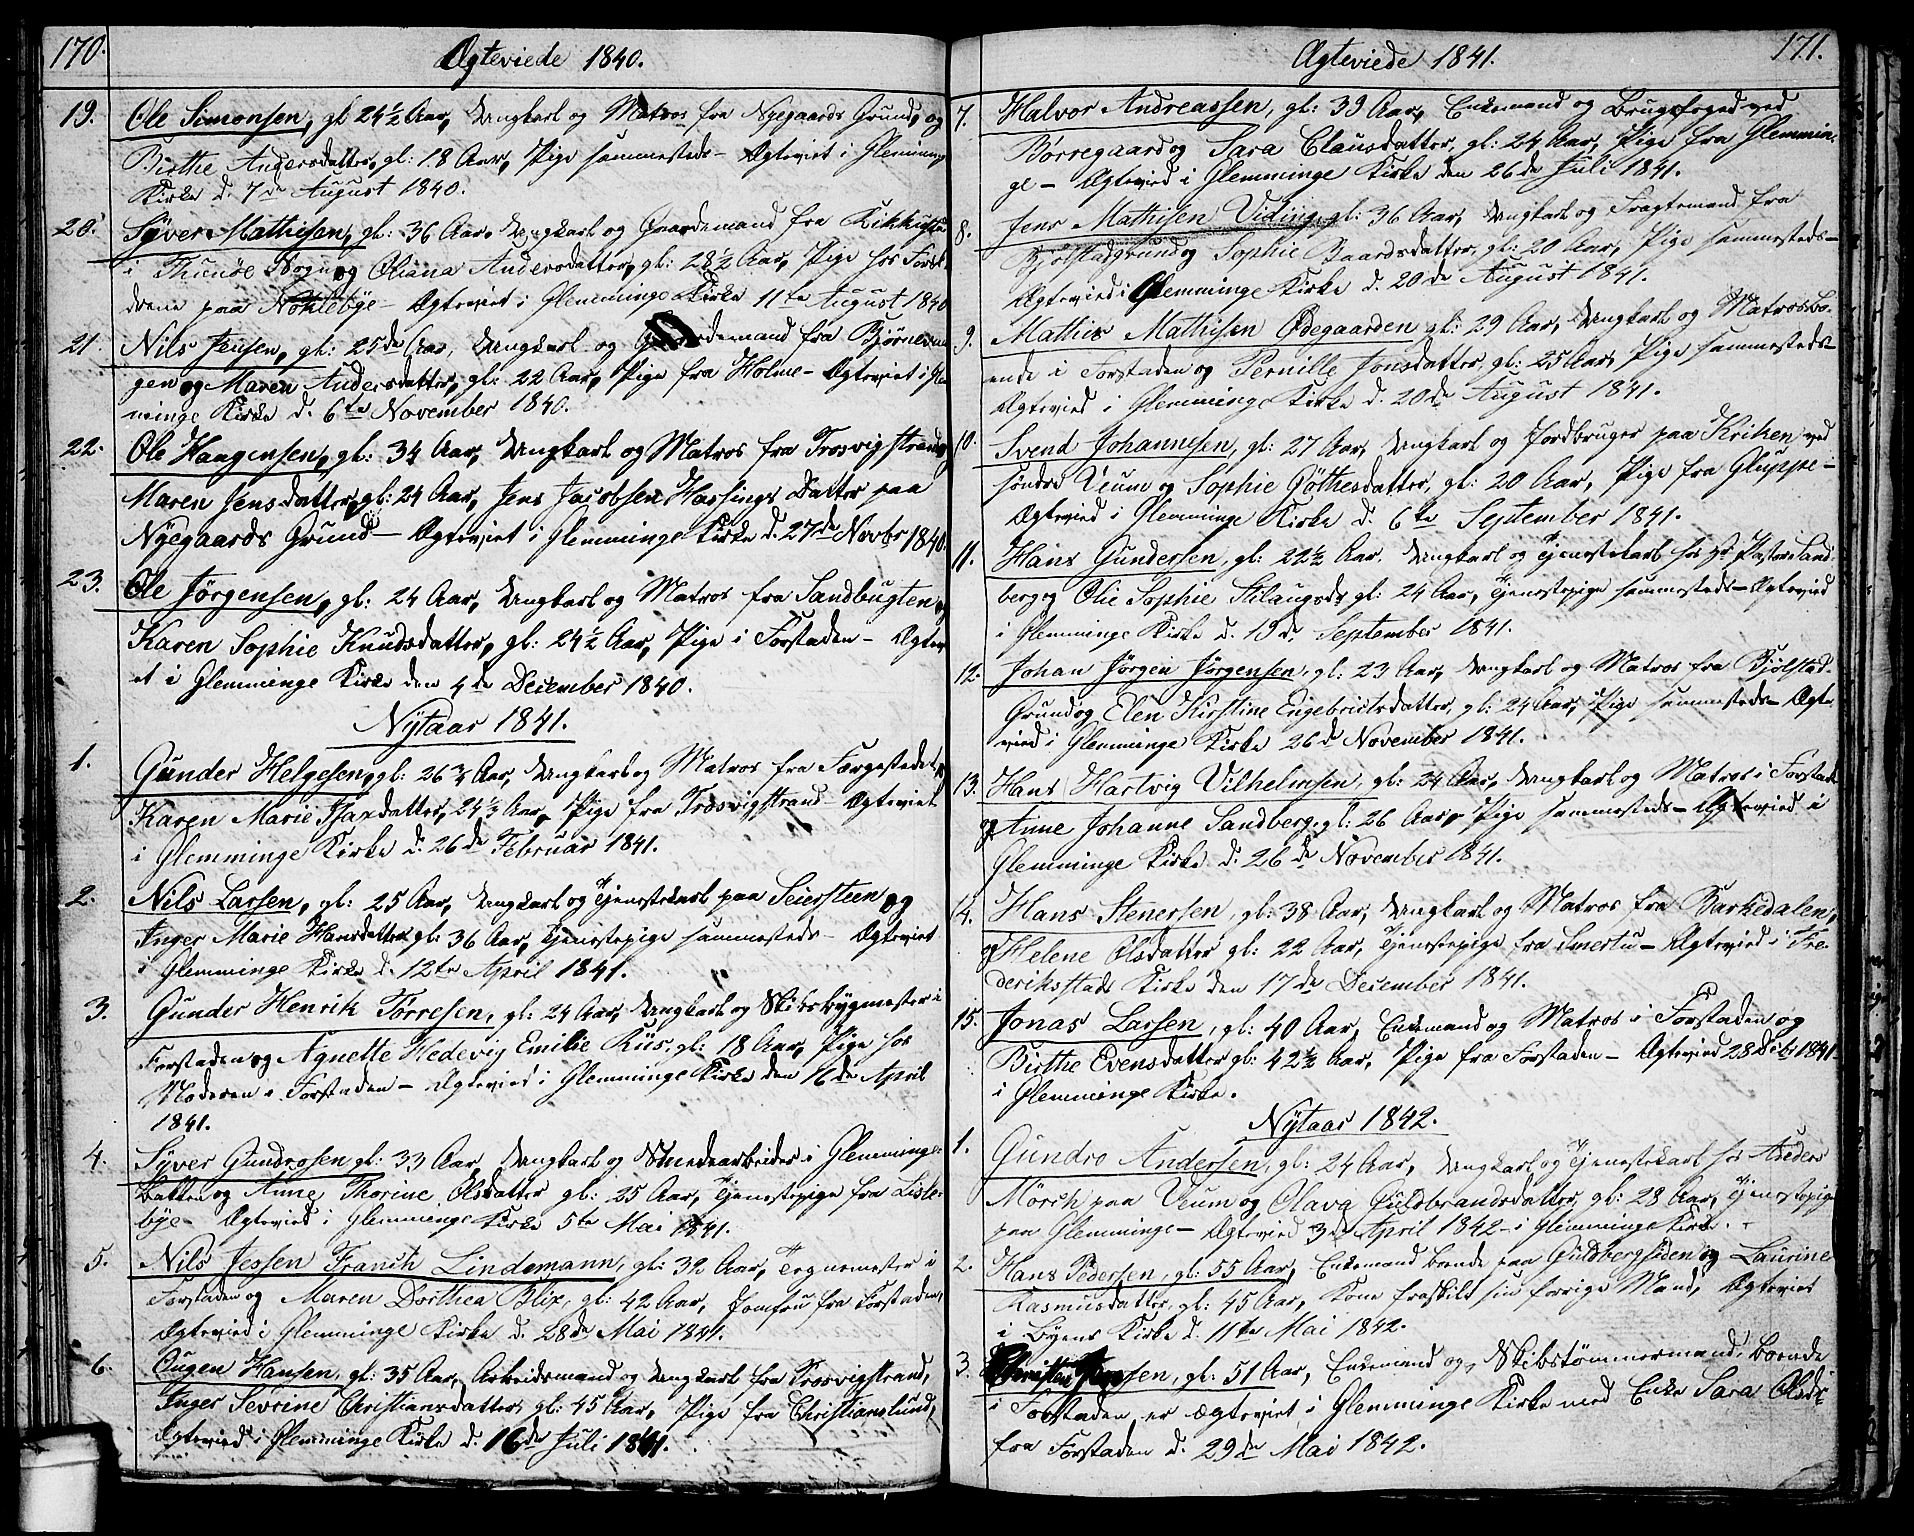 170.
Ægteviede 1840.
19. Ole Simonsen, gl: 24½ Aar, Ungkarl og Matros fra Nyegaards Grund, og
Birthe Andersdatter, gl: 18 Aar, Pige sammesteds - Ægteviet i Glemminge
Kirke d. 7de August 1840.
20. Syver Mathisen, gl: 36 Aar, Ungkarl og Gaardemand fra
i Thunøe Sogn og Oliana Andersdatter, gl: 28½ Aar, Pige hos Foræl-
drene paa Nøklebye - Ægteviet i Glemminge Kirke 11te August 1840
21. Nils Jensen, gl: 25de Aar, Ungkarl og Gaardemand fra
gen og Maren Andersdatter, gl: 22 Aar, Pige fra Holme - Ægteviet i Glem-
minge Kirke d. 6te November 1840.
22. Ole Haagensen, gl: 34 Aar, Ungkarl og Matros fra Trosvigstrand og
Maren Jensdatter, gl: 24 Aar, Jens Jacobsen Hassings Datter paa
Nyegaards Grund - Ægteviet i Glemminge Kirke d. 27de Novbr 1840.
23. Ole Jörgensen, gl: 24 Aar, Ungkarl og Matros fra Sandbugten, og
Karen Sophie Knudsdatter, gl: 24½ Aar, Pige i Forstaden - Ægtevi-
et i Glemminge Kirke den 4de December 1840.
Nytaar 1841.
1. Gunder Helgesen, gl: 26¾ Aar, Ungkarl og Matros fra Færgestedet, og
Karen Marie 24½ Aar, Pige fra Trosvigstrand - Ægteviet
i Glemminge Kirke d. 26de Februar 1841.
2. Nils Larsen, gl: 25 Aar, Ungkarl og Tjenestekarl paa Seiersteen og
Inger Marie Hansdatter gl: 36 Aar, Tjenestepige sammesteds - Ægteviet
i Glemminge Kirke d. 12te April 1841.
3. Gunder Henrik Törresen, gl: 24 Aar, Ungkarl og Skibsbygmester i
Forstaden og Agnette Hedevig Emilie Riis, gl: 18 Aar, Pige hos
Moderen i Forstaden - Ægtevied i Glemminge Kirke den 16de April
1841.
4. Syver Gundrosen gl: 33 Aar, Ungkarl og Smedearbeider i Glemminge-
bakken og Anne Thorine Olsdatter gl: 25 Aar, Tjenestepige fra Lisle-
bye - Ægtevied i Glemminge Kirke 5te Mai 1841.
5. Nils Jessen Lindemann, gl: 32 Aar, Tegnemester i
Forstaden og Maren Dorthea Blix, gl: 42 Aar, Jomfru fra Forstaden,
Ægtevied i Glemminge Kirke d. 28de Mai 1841.
6. Augen Hansen, gl: 35 Aar, Arbeidsmand og Ungkarl fra Trosvigstrand,
Inger Sevrine Christiansdatter gl: 45 Aar, Pige fra Christianslund,
Ægtevied i Glemminge Kirke d. 16de Juli 1841.
171.
Ægteviede 1841.
7. Halvor Andreassen, gl: 39 Aar, Enkemand og Brugsfoged ved
Børregaard og Sara Clausdatter, gl: 24 Aar, Pige fra Glemmin-
ge - Ægtevied i Glemminge Kirke den 26de Juli 1841.
8. Jens Mathisen Viding, gl: 36 Aar, Ungkarl og Fragtemand fra
Bjølstadgrund og Sophie Baardsdatter, gl: 20 Aar, Pige sammesteds -
Ægtevied i Glemminge Kirke d. 20de August 1841.
9. Mathis Mathisen Ødegaarden gl: 29 Aar, Ungkarl og Matros bo-
ende i Forstaden og Pernille Jonsdatter, gl: 25 Aar, Pige sammesteds -
Ægtevied i Glemminge Kirke d. 20de August 1841.
10. Svend Johannesen, gl: 27 Aar, Ungkarl og Jordbruger paa Kriken ved
søndre Veum og Sophie Göthesdatter, gl: 20 Aar, Pige fra Gluppe -
Ægtevied i Glemminge Kirke d. 6te September 1841.
11. Hans Gundersen, gl: 22½ Aar. Ungkarl og Tjenestekarl hos Hr Pastor Sand-
berg og Olie Sophie gl: 24 Aar, Tjenestepige sammesteds - Ægtevied
i Glemminge Kirke d. 13de September 1841.
12. Johan Jörgen Jörgensen, gl: 23 Aar, Ungkarl og Matros fra Bjølstad-
Grund og Elen Kirstine Engebrictsdatter, gl: 24 Aar, Pige sammesteds - Ægte-
vied i Glemminge Kirke 26de November 1841.
13. Hans Hartvig Vilhelmsen, gl: 24 Aar, Ungkarl og Matros i Forstaden
og Anne Johanne Sandberg, gl: 26 Aar, Pige sammesteds - Ægtevied i
Glemminge Kirke d. 26de November 1841.
14. Hans Stenersen, gl: 38 Aar, Ungkarl og Matros fra Barkedalen,
og Helene Olsdatter gl: 22 Aar, Tjenestepige fra Smertu - Ægtevied i Fre-
deriksstads Kirke den 17de December 1841.
15. Jonas Larsen, gl: 40 Aar, Enkemand og Matros i Forstaden og
Birthe Evensdatter gl: 42½ Aar, Pige fra Forstaden - Ægtevied 28 Decbr 1841
i Glemminge Kirke.
Nytaar 1842.
1. Gundro Andersen, gl: 24 Aar, Ungkarl og Tjenestekarl hos Anders
Mörch paa Veum og Olava Guldbrandsdatter, gl: 28 Aar, Tjenestepige
paa Glemminge - Ægtevied 3de April 1842 - i Glemminge Kirke.
2. Hans Pedersen, gl: 55 Aar, Enkemand boende paa Guldbergsiden og Laurine
Rasmusdatter, gl: 45 Aar, Kone fraskilt sin forrige Mand, Ægteviet
i Byens Kirke d. 11te Mai 1842.
3. Christen gl: 51 Aar, Enkemand og Skibstömmermand, boende
i Forstaden, er Ægteviet i Glemminge Kirke med Enke Sara Olsdr
fra Forstaden d. 29de Mai 1842.